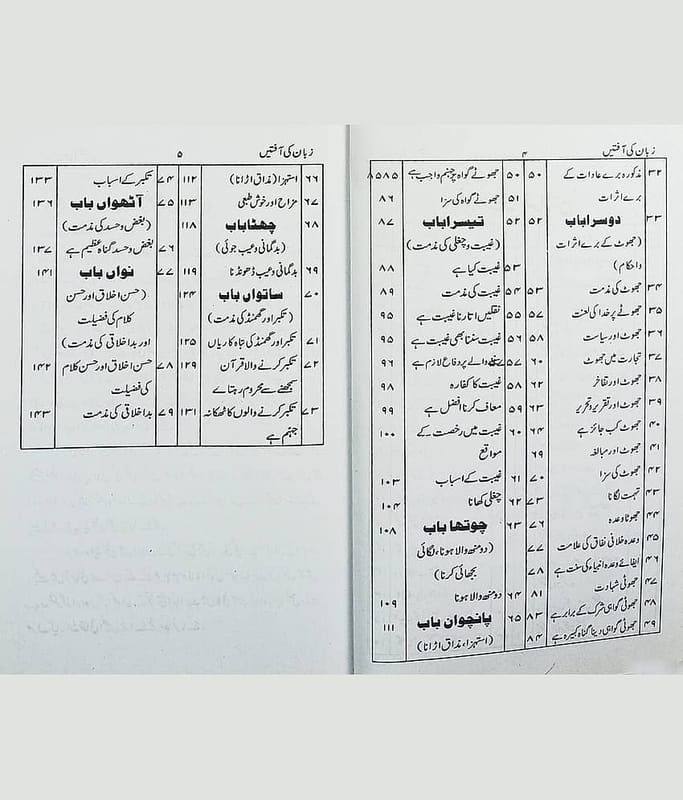 زبان کی آفتیں ۴
۳۲ مذکورہ برے عادات کے ۵۰
برے اثرات
۳۳ دوسرا باب ۵۲
(جھوٹ کے برے اثرات
واحکام)
۳۴ جھوٹ کی مذمت ۵۴
۳۵ جھوٹے پر خدا کی لعنت ۵۷
۳۶ جھوٹ اور سیاست ۵۸
۳۷ تجارت میں جھوٹ ۶۰
۳۸ جھوٹ اور تفاخر ۶۲
۳۹ جھوٹ اور تقریر و تحریر ۶۳
۴۰ جھوٹ کب جائز ہے ۶۴
۴۱ جھوٹ اور مبالغہ ۶۹
۴۲ جھوٹ کی سزا ۷۰
۴۳ تہمت لگانا ۷۳
۴۴ جھوٹا وعدہ ۷۶
۴۵ وعدہ خلافی نفاق کی علامت ۷۷
۴۶ ایفائے وعدہ انبیاء کی سنت ہے ۷۸
۴۷ جھوٹی شہادت ۸۱
۴۸ جھوٹی گواہی شرک کے برابر ہے ۸۳
۴۹ جھوٹی گواہی دینا گناہ کبیرہ ہے ۸۴
۵۰ جھوٹے گواہ پر جہنم واجب ہے ۸۵۸۵
۵۱ جھوٹے گواہ کی سزا ۸۶
۵۲ تیسرا باب ۸۷
(غیبت و چغلی کی مذمت)
۵۳ غیبت کیا ہے ۸۸
۵۴ غیبت کی مذمت ۸۹
۵۵ نقلیں اتارنا غیبت ہے ۹۵
۵۶ غیبت سننا بھی غیبت ہے ۹۵
۵۷ سننے والے پر دفاع لازم ہے ۹۶
۵۸ غیبت کا کفارہ ۹۸
۵۹ معاف کرنا افضل ہے ۹۹
۶۰ غیبت میں رخصت کے ۱۰۰
مواقع
۶۱ غیبت کے اسباب ۱۰۳
۶۲ چغلی کھانا ۱۰۴
۶۳ چوتھا باب ۱۰۸
(دو منھ والا ہونا، لگائی
بجھائی کرنا)
۶۴ دو منھ والا ہونا ۱۰۹
۶۵ پانچواں باب ۱۱۱
(استہزا، مذاق اڑانا)
زبان کی آفتیں ۵
۶۶ استہزا (مذاق اڑانا) ۱۱۲
۶۷ مزاح اور خوش طبعی ۱۱۳
۶۸ چھٹا باب ۱۱۸
(بدگمانی و عیب جوئی)
۶۹ بدگمانی و عیب ڈھونڈنا ۱۱۹
۷۰ ساتواں باب ۱۲۴
(تکبر اور گھمنڈ کی مذمت)
۷۱ تکبر اور گھمنڈ کی تباہ کاریاں ۱۲۵
۷۲ تکبر کرنے والا قرآن ۱۲۹
سمجھنے سے محروم رہتا ہے
۷۳ تکبر کرنے والوں کا ٹھکانہ ۱۳۱
جہنم ہے
۷۴ تکبر کے اسباب ۱۳۳
۷۵ آٹھواں باب ۱۳۶
(بغض و حسد کی مذمت)
۷۶ بغض و حسد گناہ عظیم ہے ۱۳۷
۷۷ نواں باب ۱۴۱
(حسن اخلاق اور حسن
کلام کی فضیلت
اور بداخلاقی کی مذمت)
۷۸ حسن اخلاق اور حسن کلام ۱۴۲
کی فضیلت
۷۹ بداخلاقی کی مذمت ۱۴۳